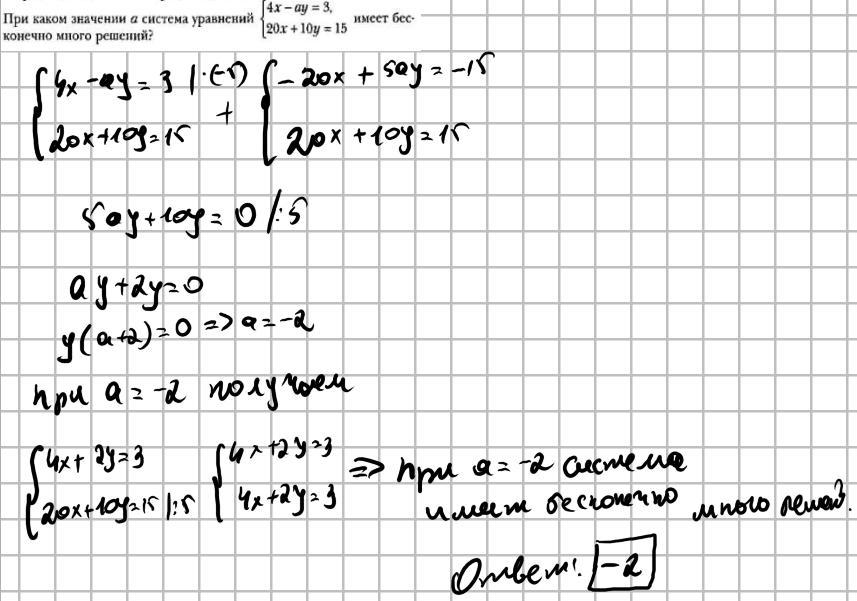 При каком значении a система уравнений {4x − ay = 3, 20x + 10y = 15 имеет бес-
конечно много решений?
{4x − ay = 3 | ·(−5)
20x + 10y = 15
+
{−20x + 5ay = −15
20x + 10y = 15
5ay + 10y = 0 /:5
ay + 2y = 0
y(a+2) = 0 => a = −2
при a = −2 получаем
{4x + 2y = 3
20x + 10y = 15 |:5
{4x + 2y = 3
4x + 2y = 3
=> при a = −2 система
имеет бесконечно много решений.
Ответ: −2